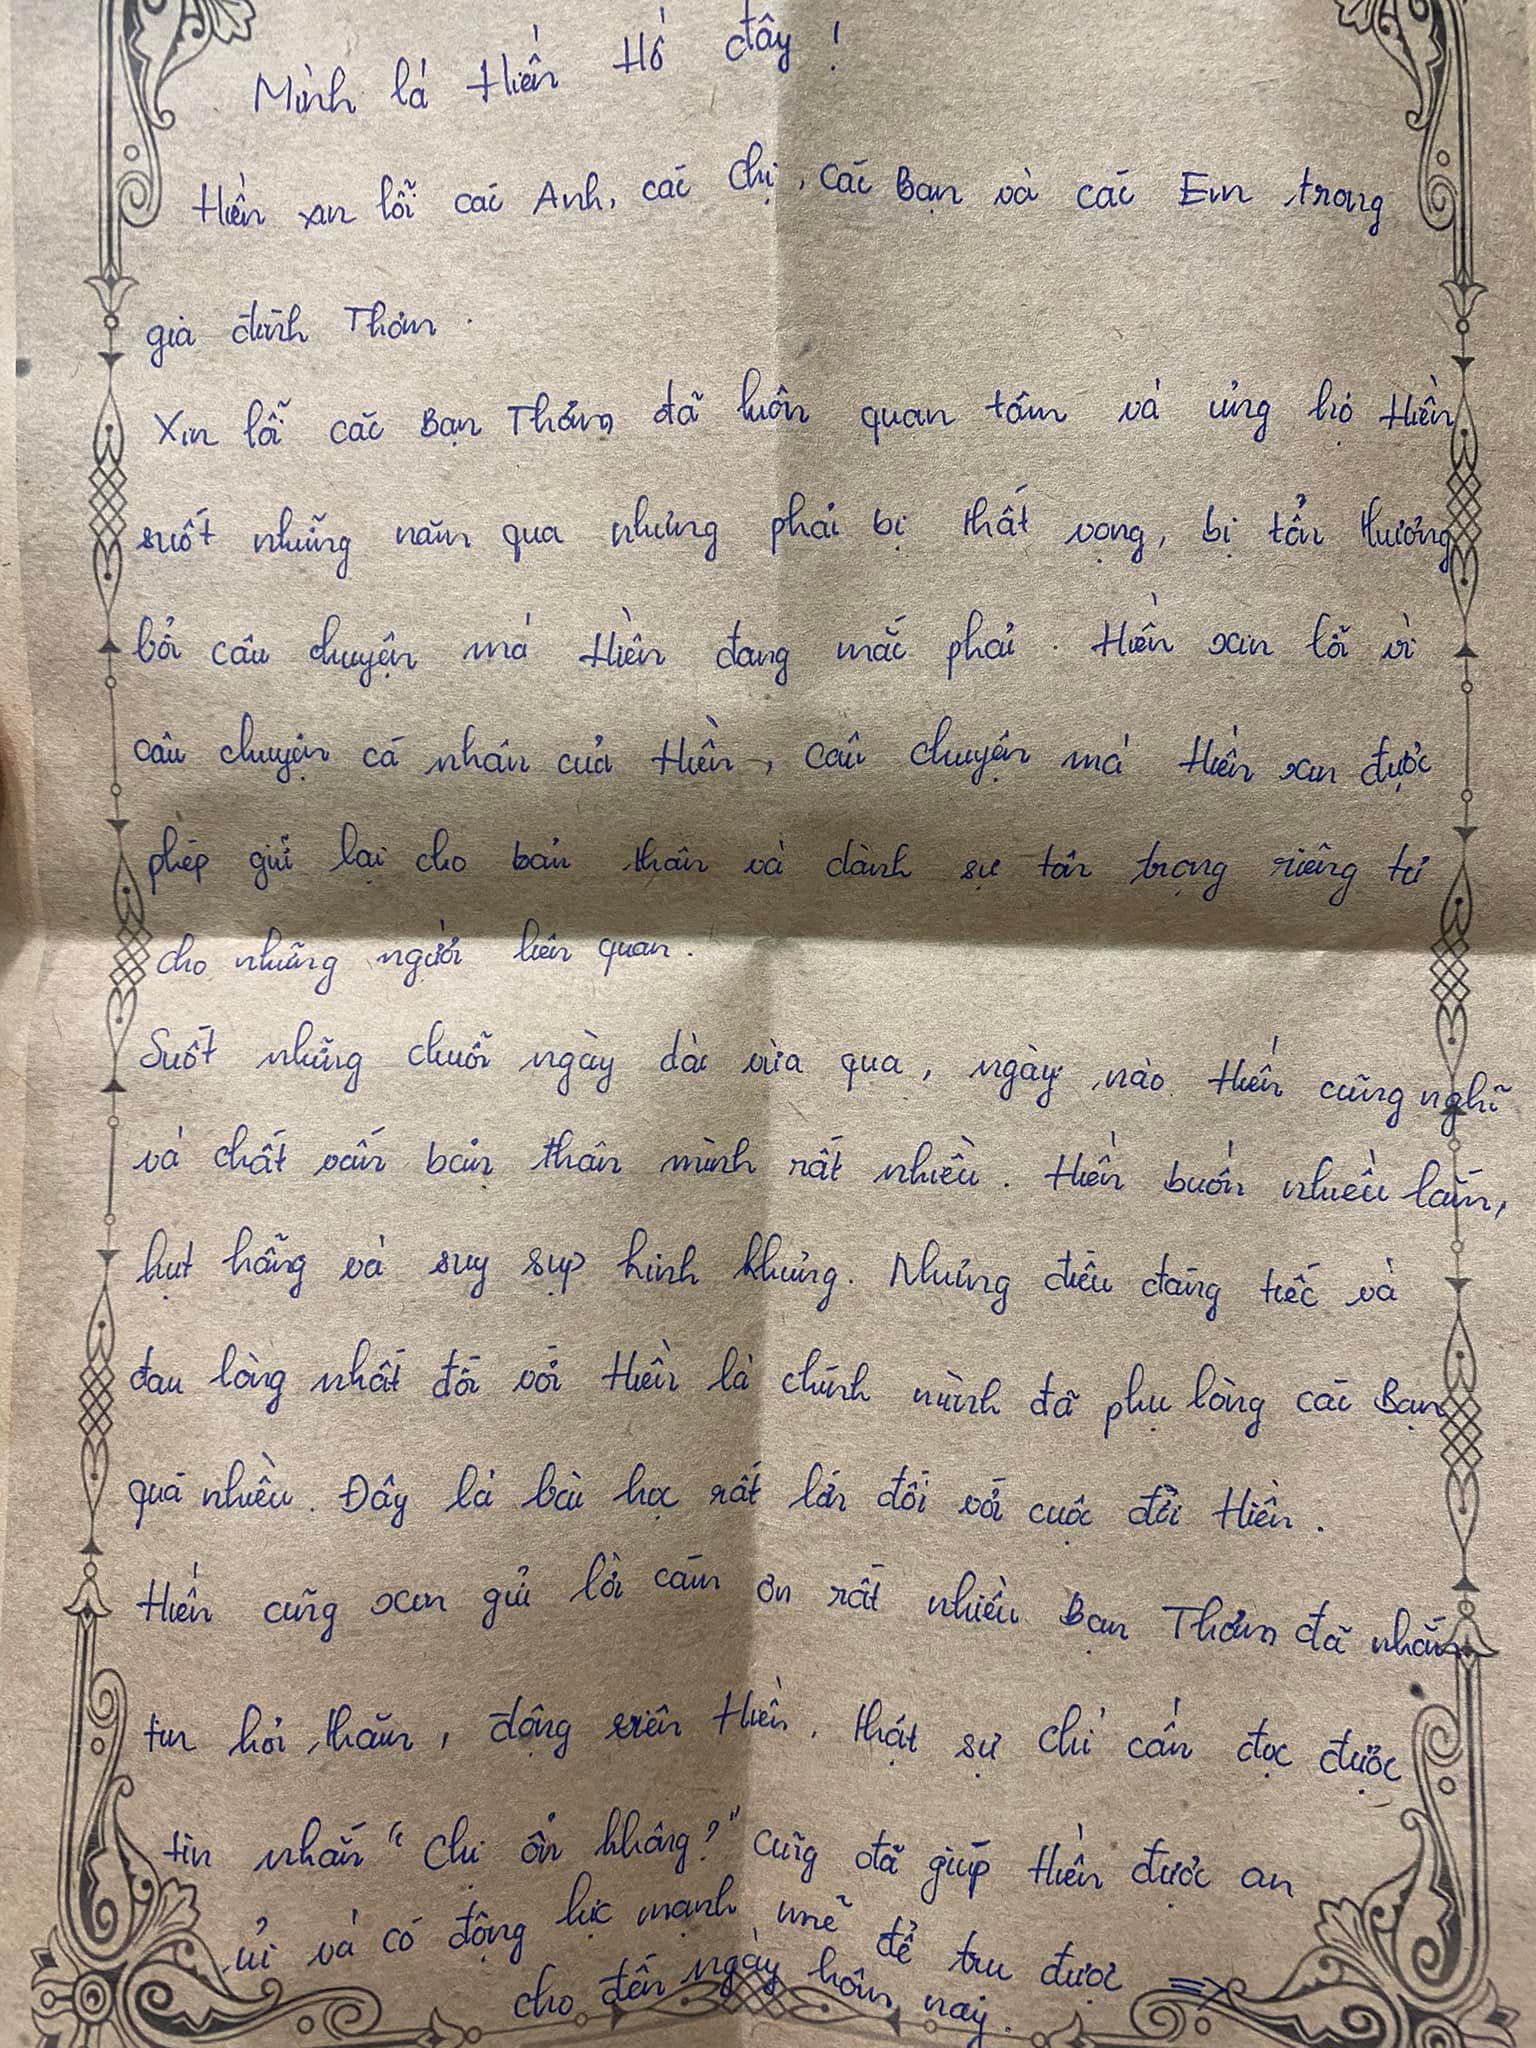 Mình là Hiền Hồ đây !
Hiền xin lỗi các Anh, các chị, các Bạn và các Em trong
gia đình Thơm.
Xin lỗi các Bạn Thơm đã luôn quan tâm và ủng hộ Hiền
suốt những năm qua nhưng phải bị thất vọng, bị tổn thương
bởi câu chuyện mà Hiền đang mắc phải. Hiền xin lỗi vì
câu chuyện cá nhân của Hiền, câu chuyện mà Hiền xin được
phép giữ lại cho bản thân và dành sự tôn trọng riêng tư
cho những người liên quan.
Suốt những chuỗi ngày dài vừa qua, ngày nào Hiền cũng nghĩ
và chất vấn bản thân mình rất nhiều. Hiền buồn nhiều lắm,
hụt hẫng và suy sụp kinh khủng. Nhưng điều đáng tiếc và
đau lòng nhất đối với Hiền là chính mình đã phụ lòng các Bạn
quá nhiều. Đây là bài học rất lớn đối với cuộc đời Hiền.
Hiền cũng xin gửi lời cám ơn rất nhiều Bạn Thơm đã nhắn
tin hỏi thăm, động viên Hiền. thật sự chỉ cần đọc được
tin nhắn "Chị ổn không?" cũng đã giúp Hiền được an
ủi và có động lực mạnh mẽ để trụ được =>
cho đến ngày hôm nay.